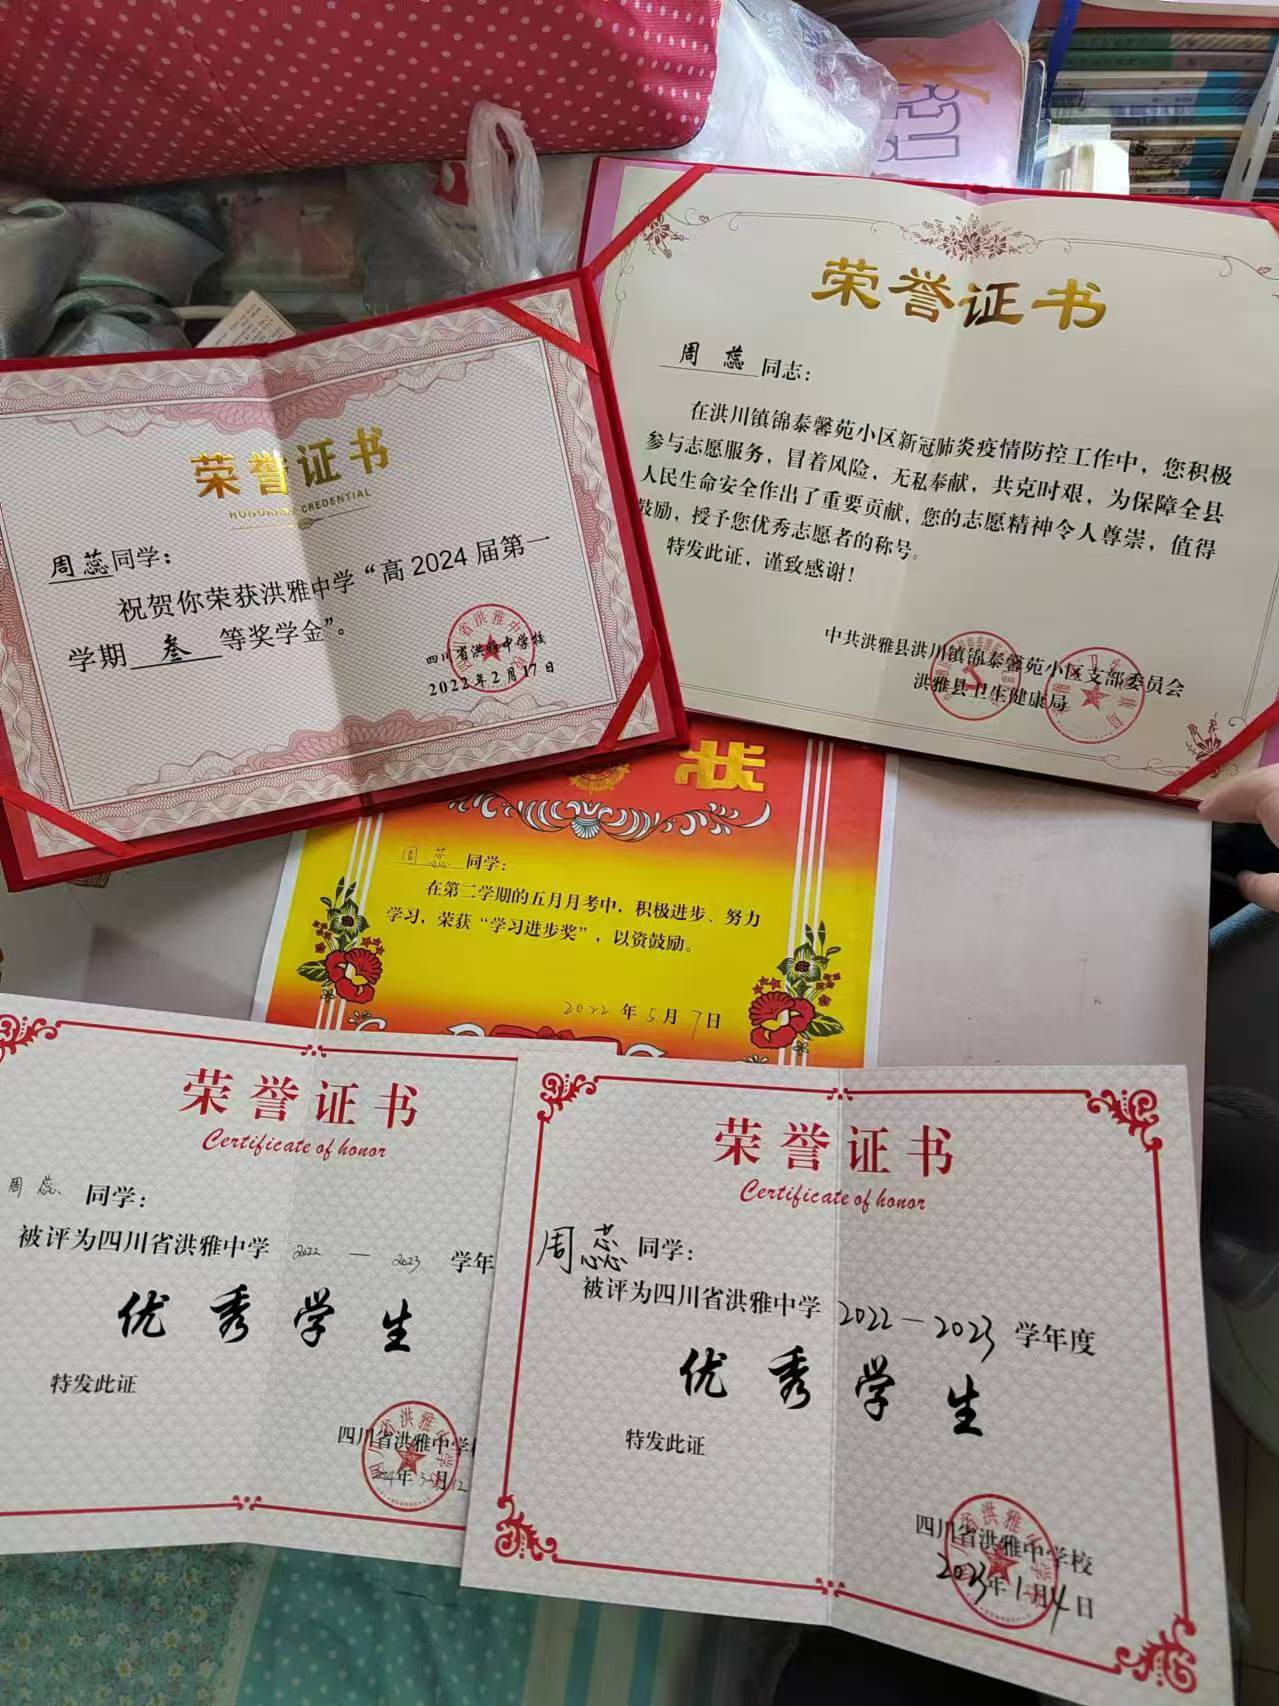 荣誉证书
周蕊同志：
在洪川镇锦泰馨苑小区新冠肺炎疫情防控工作中，您积极
参与志愿服务，冒着风险，无私奉献，共克时艰，为保障全县
人民生命安全作出了重要贡献，您的志愿精神令人尊崇，值得
鼓励，授予您优秀志愿者的称号。
特发此证，谨致感谢！
中共洪雅县洪川镇锦泰馨苑小区支部委员会
洪雅县卫生健康局
荣誉证书
CREDENTIAL
周蕊同学：
祝贺你荣获洪雅中学“高2024届第一
学期叁等奖学金”。
四川省洪雅中学校
2022年2月17日
状
周蕊同学：
在第二学期的五月月考中，积极进步、努力
学习，荣获“学习进步奖”，以资鼓励。
2022年5月7日
荣誉证书
Certificate of honor
周蕊同学：
被评为四川省洪雅中学2022—2023学年
优秀学生
特发此证
四川省洪雅中学校
荣誉证书
Certificate of honor
周蕊同学：
被评为四川省洪雅中学2022—2023学年度
优秀学生
特发此证
四川省洪雅中学校
2023年1月4日